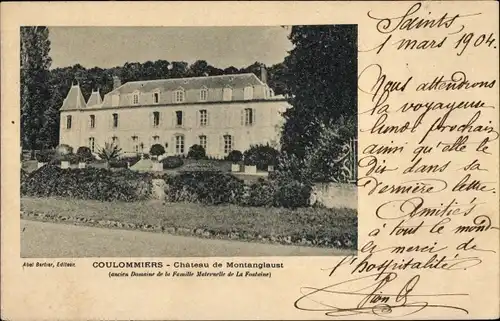 Saints
1 mars 1904.
Nous attendrons
la voyageuse
lundi prochain
ainsi qu'elle le
dit dans sa
dernière lettre.
Amitiés
à tout le monde
et merci de
l'hospitalité.
Abel Barbier, Éditeur.
COULOMMIERS - Château de Montanglaust
(ancien Domaine de la Famille Maternelle de La Fontaine)